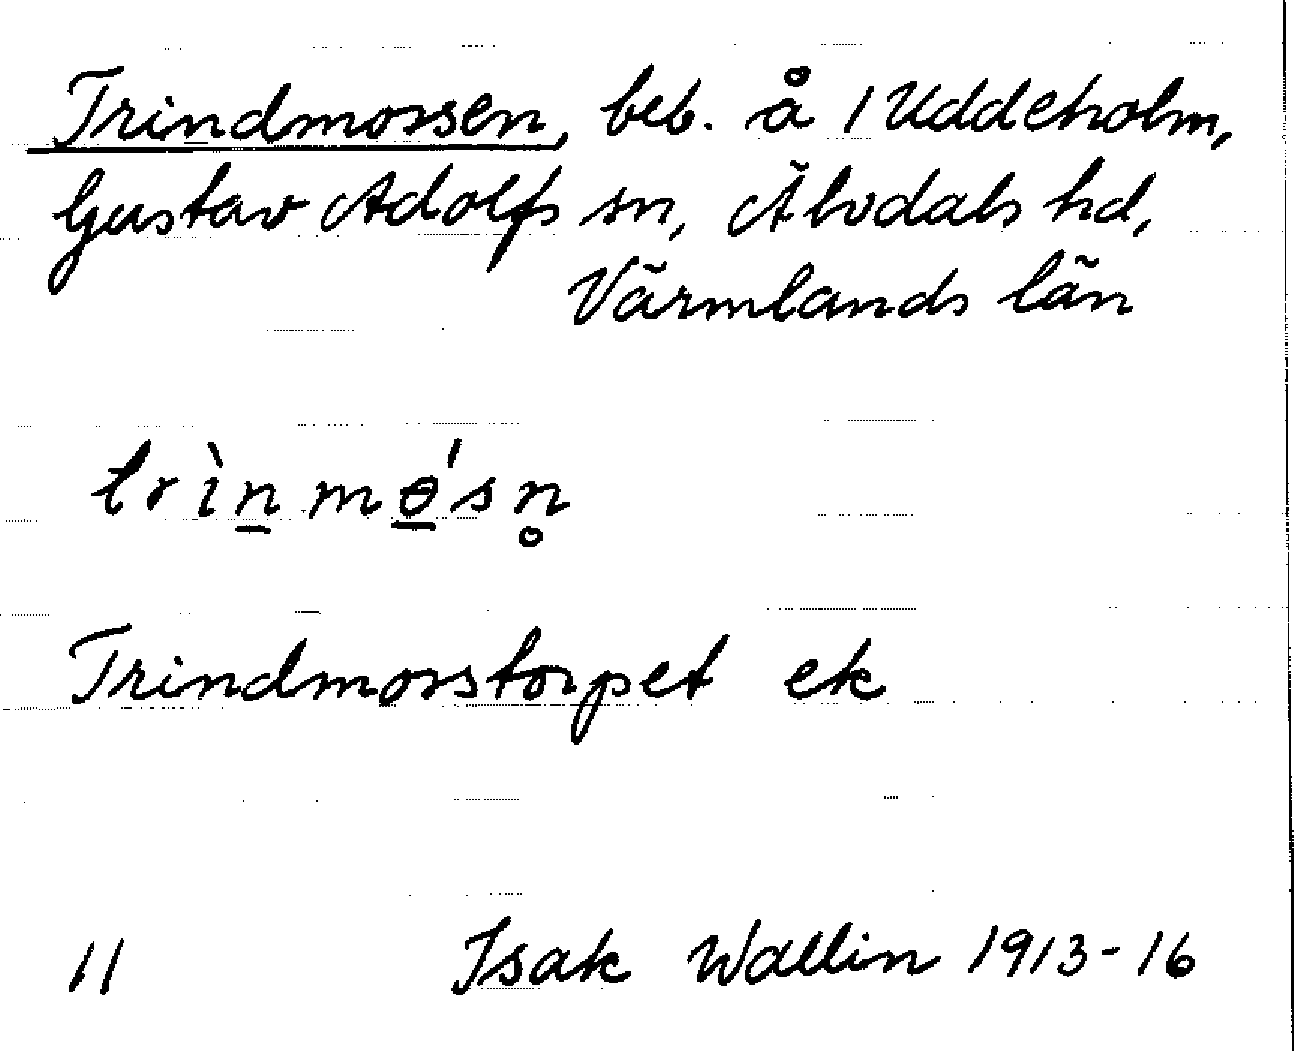 Trindmossen, beb. å 1 Uddeholm,
Gustav Adolfs sn, Älvdals hd,
Värmlands län
trìn̲mɵ̲́sn̥
Trindmosstorpet ek
11 Isak Wallin 1913-16